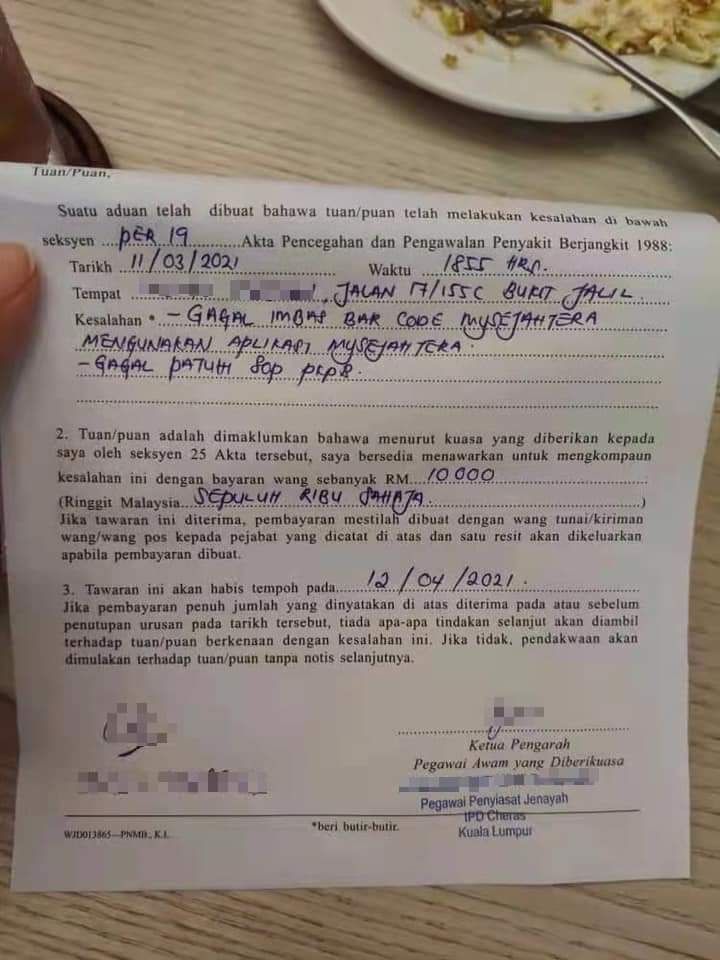 Tuan/Puan,
Suatu aduan telah dibuat bahawa tuan/puan telah melakukan kesalahan di bawah
seksyen ....PER 19..........Akta Pencegahan dan Pengawalan Penyakit Berjangkit 1988:
Tarikh ..11/03/2021.......... Waktu .......1855 HRS.
Tempat , JALAN 17/155C BUKIT JALIL.
Kesalahan * – GAGAL IMBAS BAR CODE MYSEJAHTERA
MENGUNAKAN APLIKASI MYSEJAHTERA.
– GAGAL PATUH SOP PKPB.
2. Tuan/puan adalah dimaklumkan bahawa menurut kuasa yang diberikan kepada
saya oleh seksyen 25 Akta tersebut, saya bersedia menawarkan untuk mengkompaun
kesalahan ini dengan bayaran wang sebanyak RM....10 000..........
(Ringgit Malaysia...SEPULUH RIBU SAHAJA..........)
Jika tawaran ini diterima, pembayaran mestilah dibuat dengan wang tunai/kiriman
wang/wang pos kepada pejabat yang dicatat di atas dan satu resit akan dikeluarkan
apabila pembayaran dibuat.
3. Tawaran ini akan habis tempoh pada......12/04/2021.
Jika pembayaran penuh jumlah yang dinyatakan di atas diterima pada atau sebelum
penutupan urusan pada tarikh tersebut, tiada apa-apa tindakan selanjut akan diambil
terhadap tuan/puan berkenaan dengan kesalahan ini. Jika tidak, pendakwaan akan
dimulakan terhadap tuan/puan tanpa notis selanjutnya.
Ketua Pengarah
Pegawai Awam yang Diberikuasa
Pegawai Penyiasat Jenayah
IPD Cheras
Kuala Lumpur
*beri butir-butir.
WJD013865—PNMB., K.L.